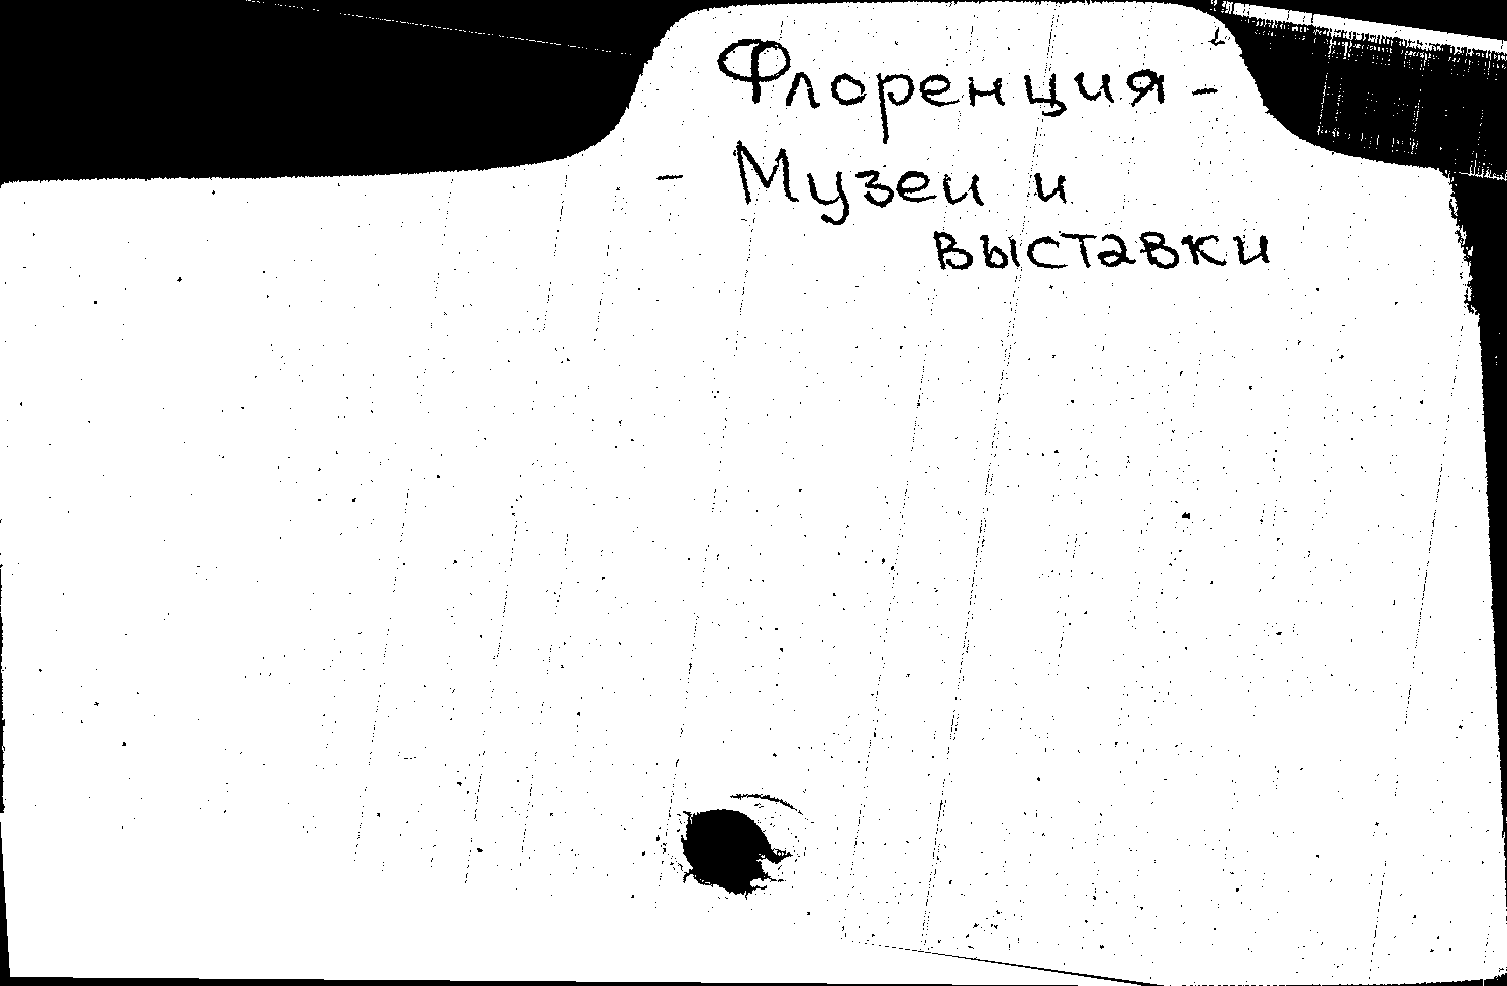 Флоренция -
- Музеи и
выставки